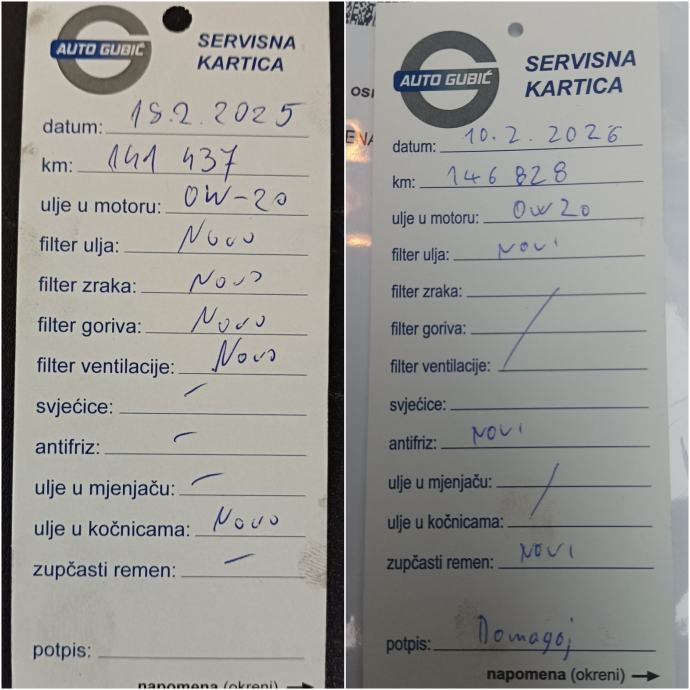 AUTO GUBIĆ
SERVISNA
KARTICA
datum: 18.2.2025
km: 141 437
ulje u motoru: 0W-20
filter ulja: Novo
filter zraka: Novo
filter goriva: Novo
filter ventilacije: Novo
svjećice: -
antifriz: -
ulje u mjenjaču: -
ulje u kočnicama: Novo
zupčasti remen: -
potpis:
napomena (okreni) →
AUTO GUBIĆ
SERVISNA
KARTICA
datum: 10.2.2026
km: 146 828
ulje u motoru: 0W20
filter ulja: NOVI
filter zraka: /
filter goriva:
filter ventilacije:
svjećice:
antifriz: NOVI
ulje u mjenjaču: /
ulje u kočnicama:
zupčasti remen: NOVI
potpis: Domagoj
napomena (okreni) →